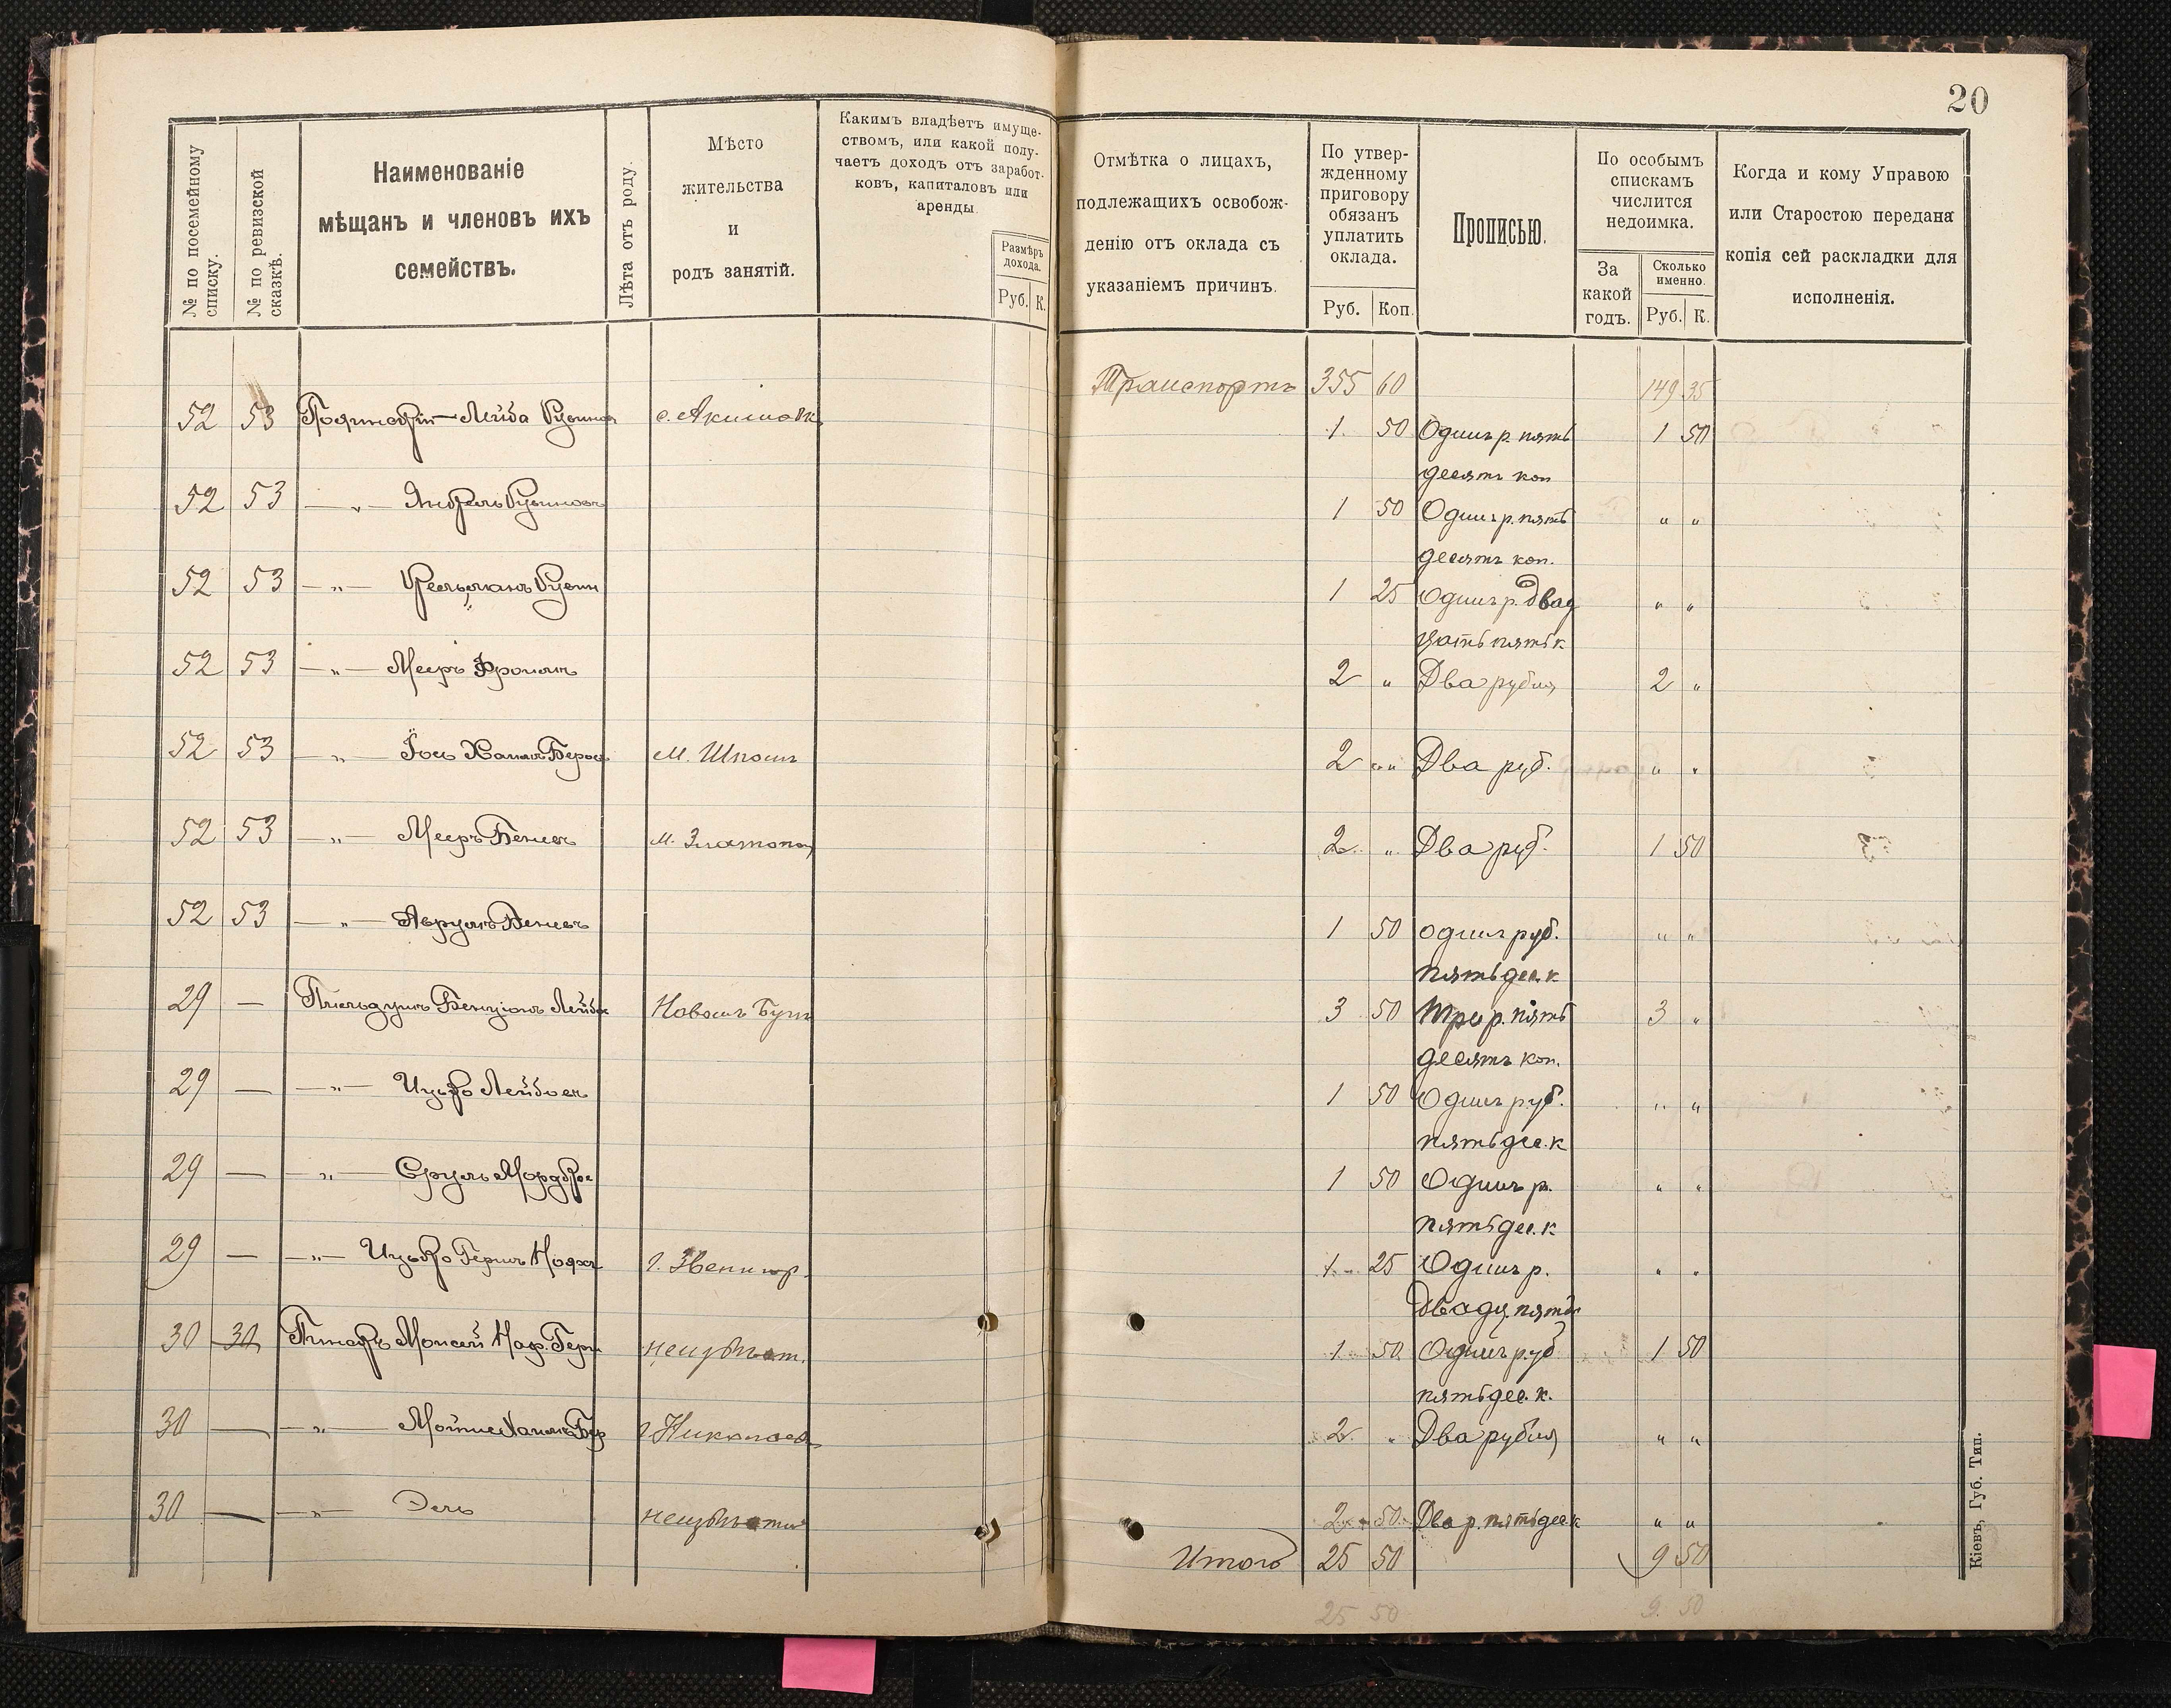 20
№ по посемейному списку.
№ по ревизской сказкѣ.
Наименованіе
мѣщанъ и членовъ ихъ
семействъ.
Лѣта отъ роду.
Мѣсто
жительства
и
родъ занятій.
Какимъ владѣетъ имуще-
ствомъ, или какой полу-
чаетъ доходъ отъ заработ-
ковъ, капиталовъ или
аренды.
Размѣръ
дохода.
Руб. К.
Отмѣтка о лицахъ,
подлежащихъ освобож-
денію отъ оклада съ
указаніемъ причинъ.
По утвер-
жденному
приговору
обязанъ
уплатить
оклада.
Руб. Коп.
Прописью.
По особымъ
спискамъ
числится
недоимка.
За
какой
годъ.
Сколько
именно.
Руб. К.
Когда и кому Управою
или Старостою передана
копія сей раскладки для
исполненія.
Транспортъ 355 60 149 35
52 53 Лейба 1 50 Одинъ р. пять 1 50
десять коп
52 53 — „ — 1 50 Одинъ р. пять „ „
десять коп.
52 53 — „ — 1 25 Одинъ р. двад „ „
цать пять к
52 53 — „ — Мееръ Фроимъ 2 „ Два рубля 2 „
52 53 — „ — Хаимъ Беров м. Шпола 2 „ „ Два руб. „ „
52 53 — „ — Мееръ Бенев м. Златопол 2 „ Два руб. 1 50
52 53 — „ — Аврумъ Бенев 1 50 одинъ руб. „ „
пятьдес. к
29 — Бенціонъ Лейбов Новый Бугъ 3 50 Три р. пять 3 „
десять коп.
29 — — „ — Ицько Лейбов 1 50 Одинъ руб. „ „
пятьдес. к
29 — — „ — Сруль Мордков 1 50 Одинъ р. „ „
пятьдес. к
29 — — „ — Ицько Герш 1 25 Одинъ р. „ „
г. Звенигор.
двадц. пять
30 30 Моисей Герш неизвѣст. 1 50 Одинъ руб 1 50
пятьдес. к.
30 — — „ — Мойше Хаимъ Бер г. Николаев 2 „ Два рубля „ „
30 — — „ — неизвѣстн 2 50 Два р. пятьдес. к „ „
Итого 25 50 9 50
25 50 9 50
Кіевъ, Губ. Тип.